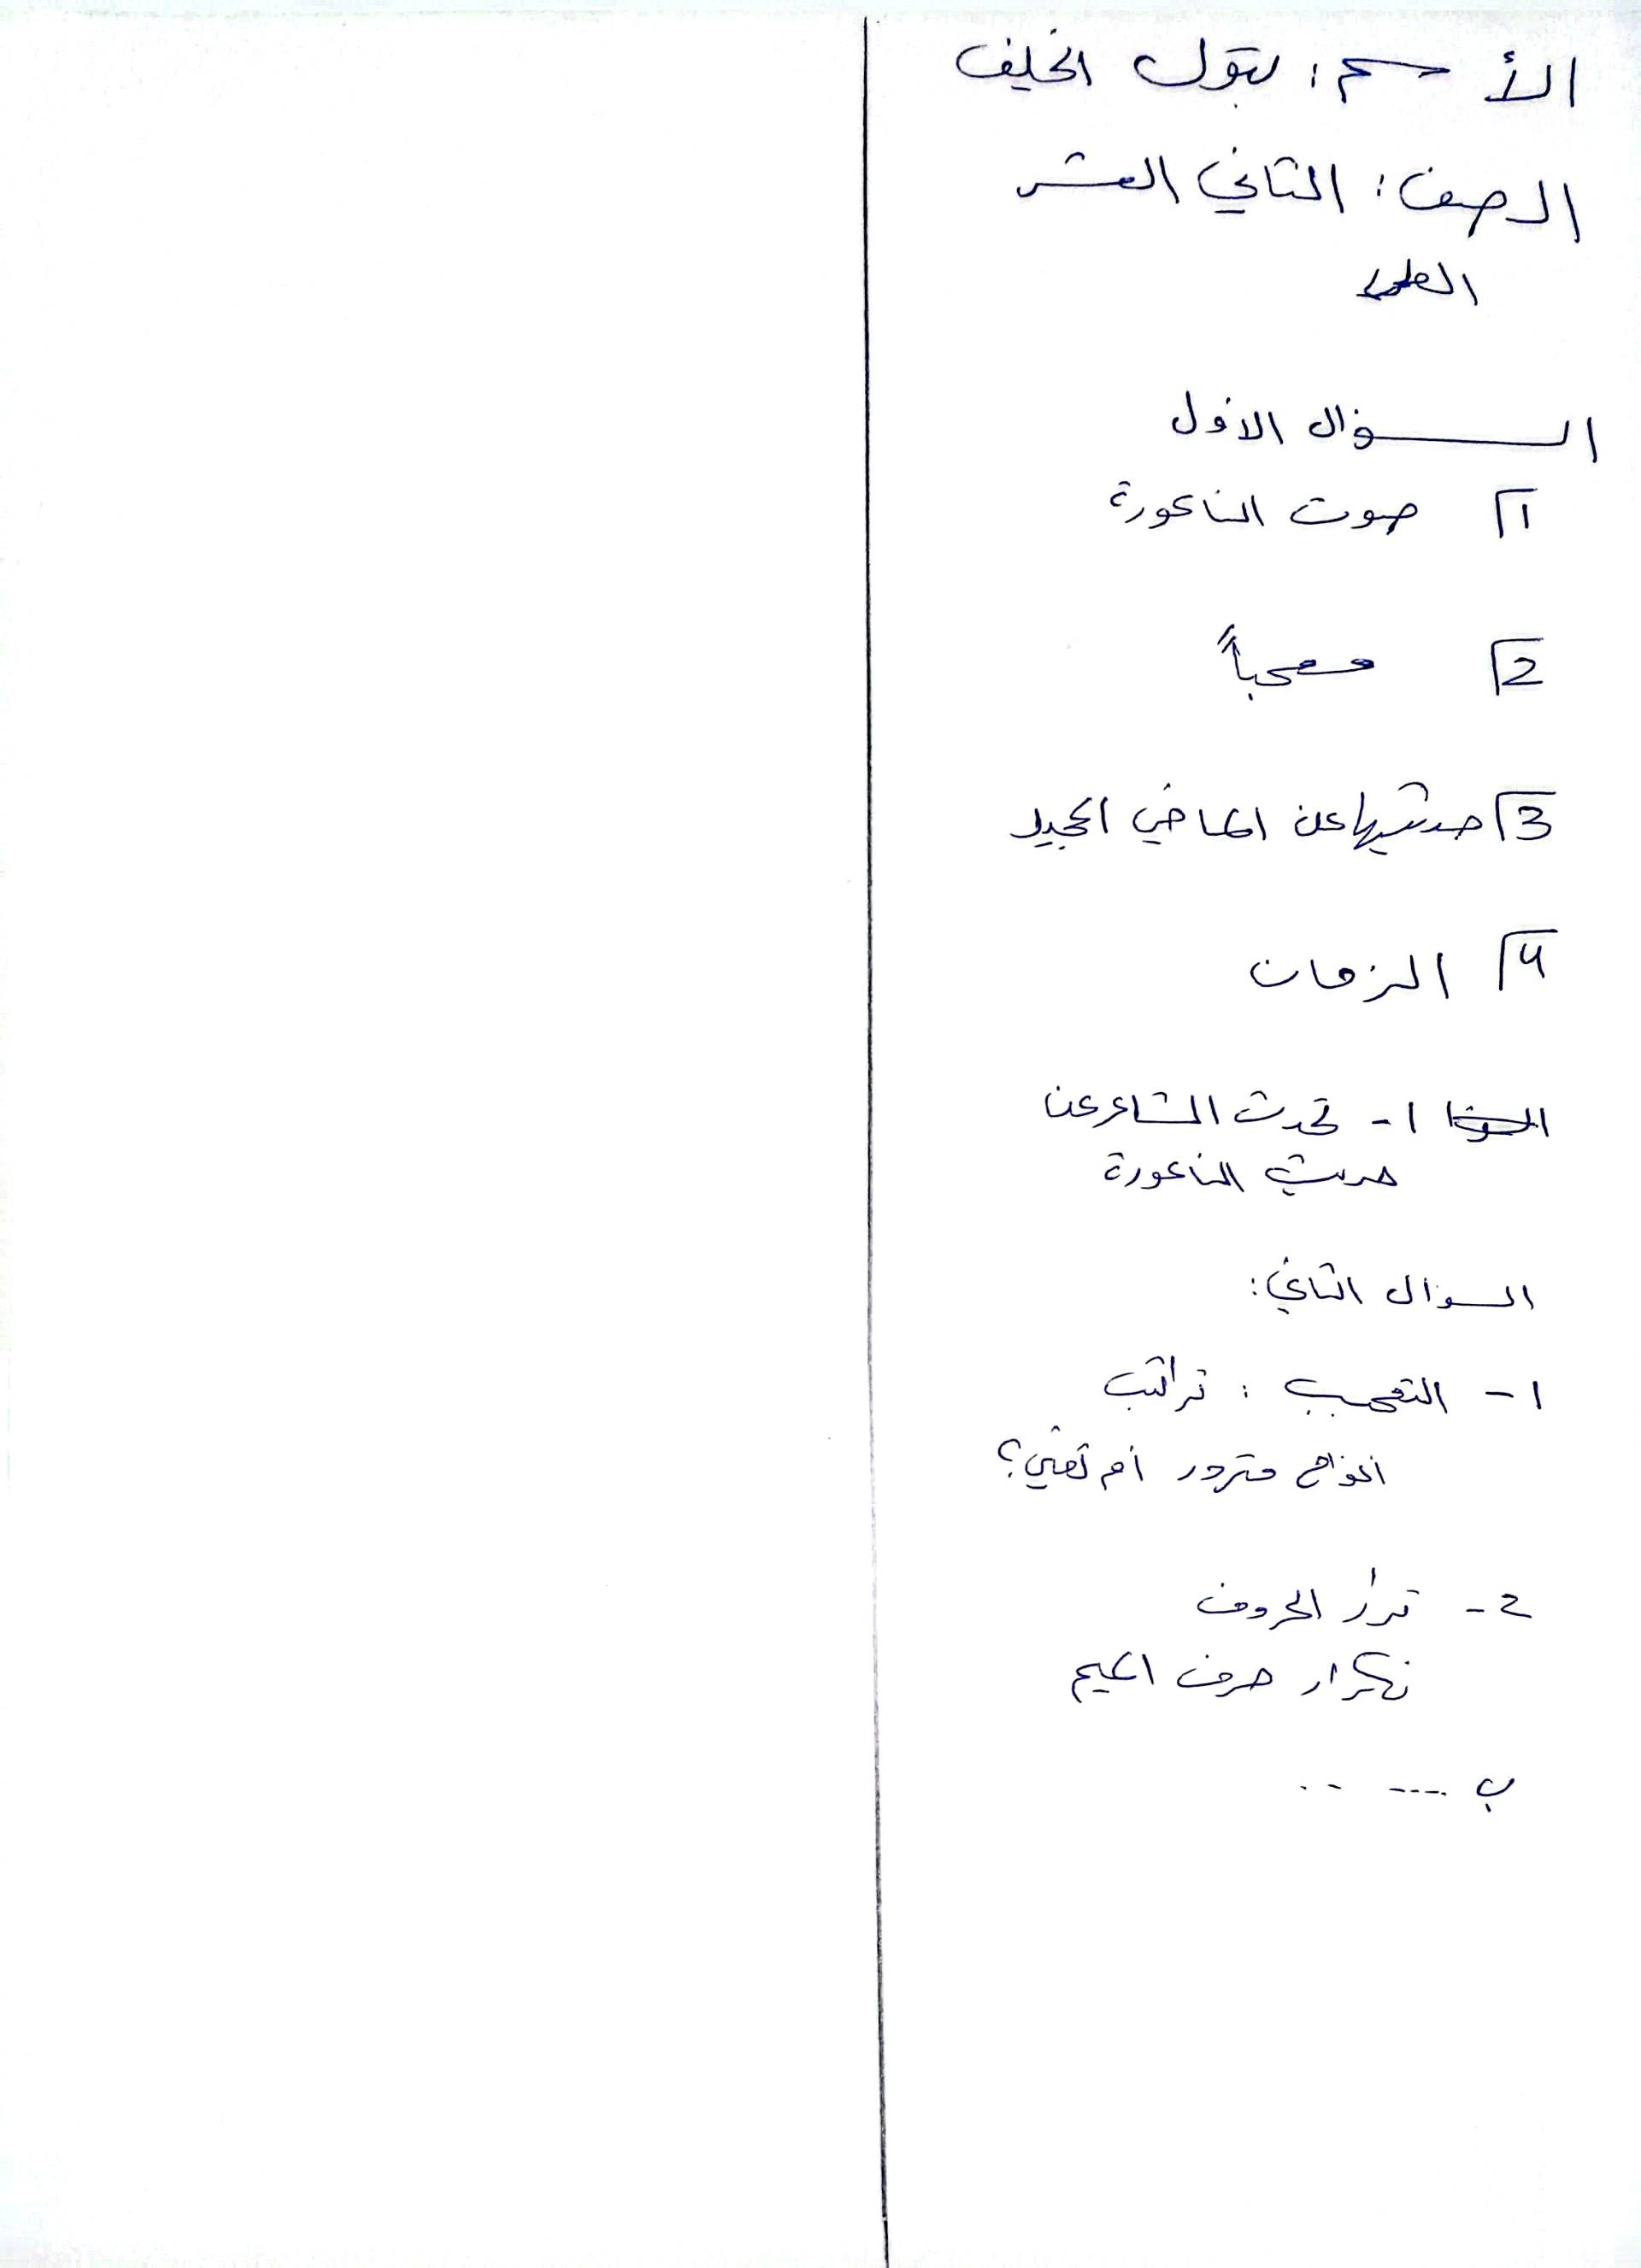 الأسم: بتول الخليف
الصف: الثاني العشر
السؤال الاول
1 صوت الناعورة
2 معجباً
3 حدثيها عن الماضي المجيد
4 الزمان
1- تحدث الشاعر عن
حديث الناعورة
السؤال الثاني:
1- التعجب : تراتب
انواح مترور أم تغني؟
2- ترار الحروف
تكرار حرف الميم
ب ---- --